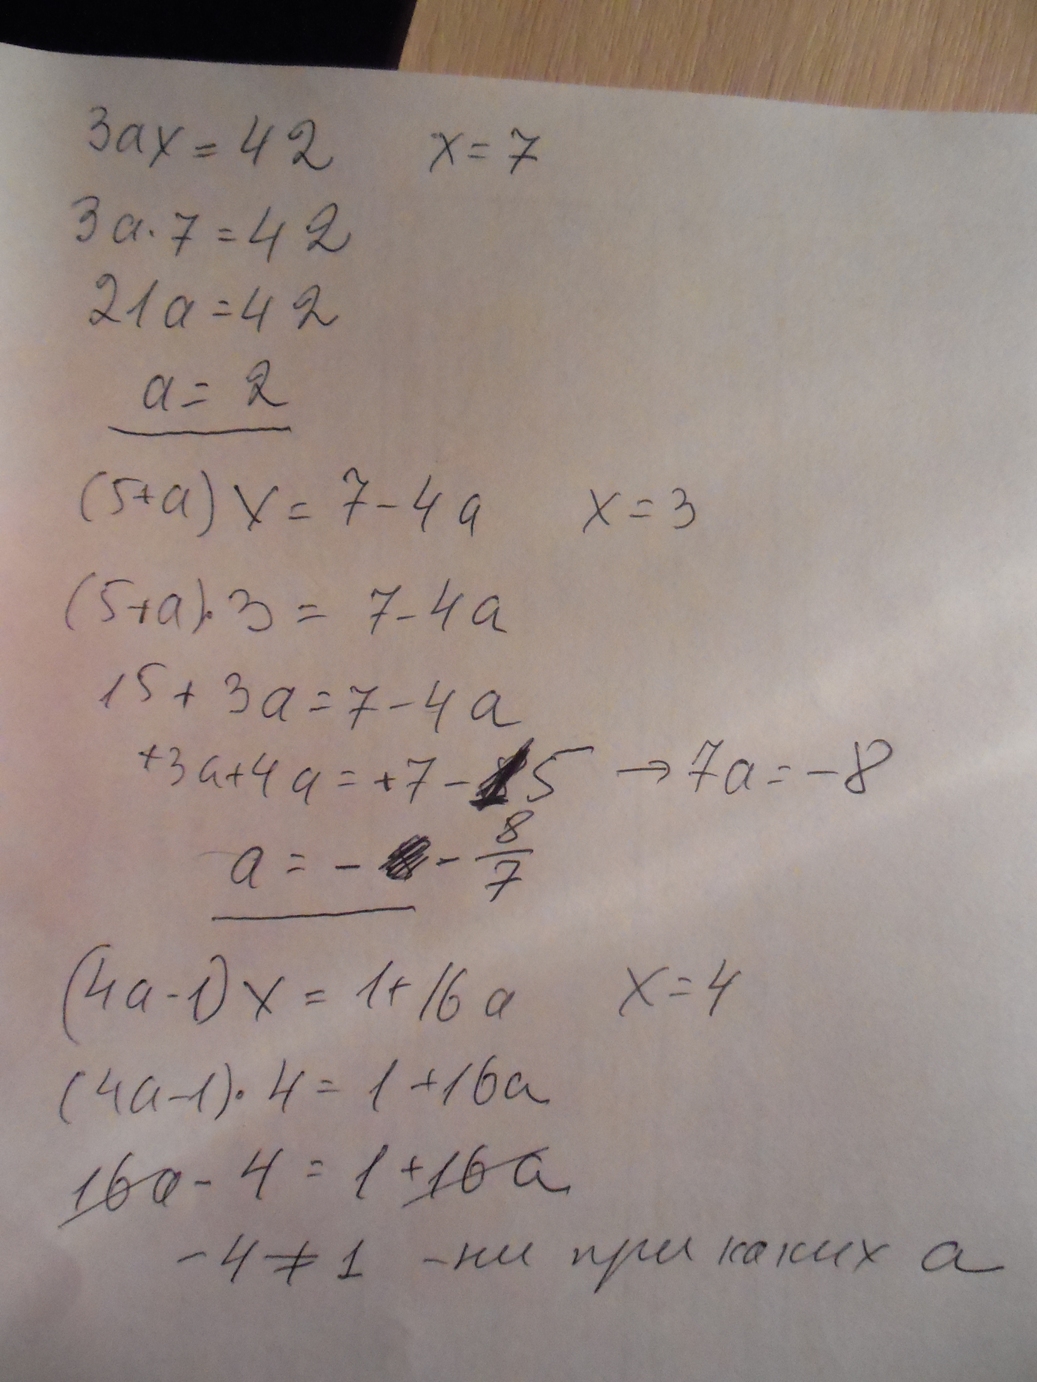 3ax = 42 x = 7
3a·7 = 42
21a = 42
a = 2
(5+a)x = 7-4a x = 3
(5+a)·3 = 7-4a
15+3a = 7-4a
+3a+4a = +7-15 → 7a = -8
a = - - 8/7
(4a-1)x = 1+16a x = 4
(4a-1)·4 = 1+16a
16a - 4 = 1+16a
-4 ≠ 1 - ни при каких a